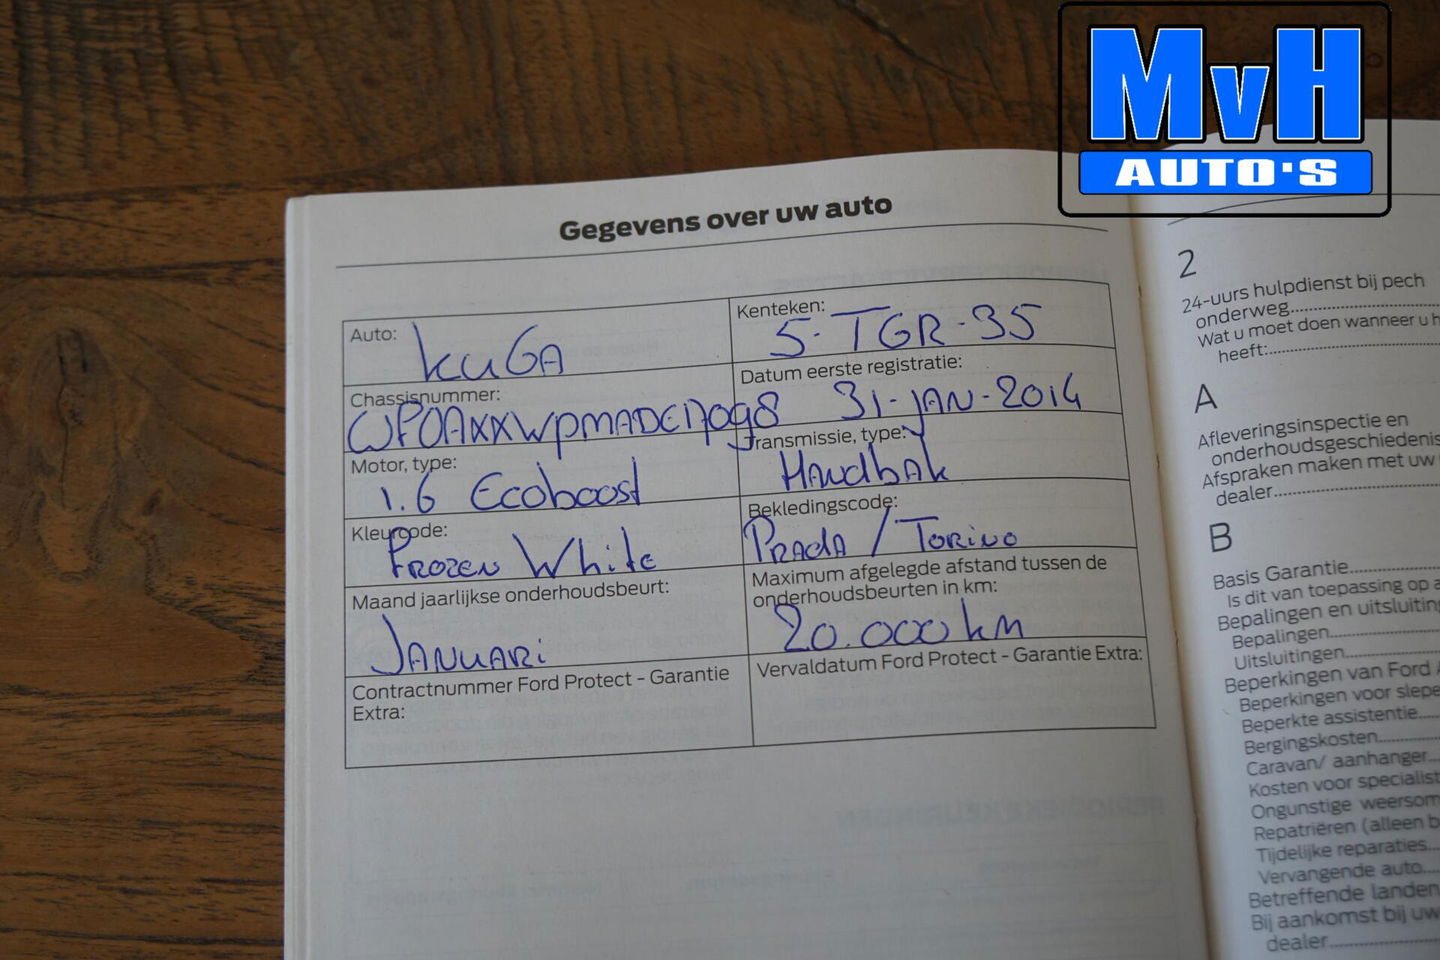 MvH
AUTO'S
Gegevens over uw auto
Auto: KUGA
Kenteken: 5-TGR-35
Chassisnummer:
Datum eerste registratie: 31-JAN-2014
Motor, type: 1.6 Ecoboost
Transmissie, type: Handbak
Kleurcode: Frozen White
Bekledingscode: Prada / Torino
Maand jaarlijkse onderhoudsbeurt:
Januari
Maximum afgelegde afstand tussen de
onderhoudsbeurten in km:
20.000 km
Contractnummer Ford Protect - Garantie
Extra:
Vervaldatum Ford Protect - Garantie Extra:
2
24-uurs hulpdienst bij pech
onderweg
Wat u moet doen wanneer u
heeft:
A
Afleveringsinspectie en
onderhoudsgeschiedenis
Afspraken maken met uw
dealer
B
Basis Garantie
Is dit van toepassing op
Bepalingen en
Bepalingen
Uitsluitingen
Beperkingen van Ford
Beperkingen voor
Beperkte assistentie
Bergingskosten
Caravan/ aanhanger
Kosten voor
Ongunstige
Repatriëren (alleen
Tijdelijke reparaties
Vervangende auto
Betreffende landen
Bij aankomst bij uw
dealer